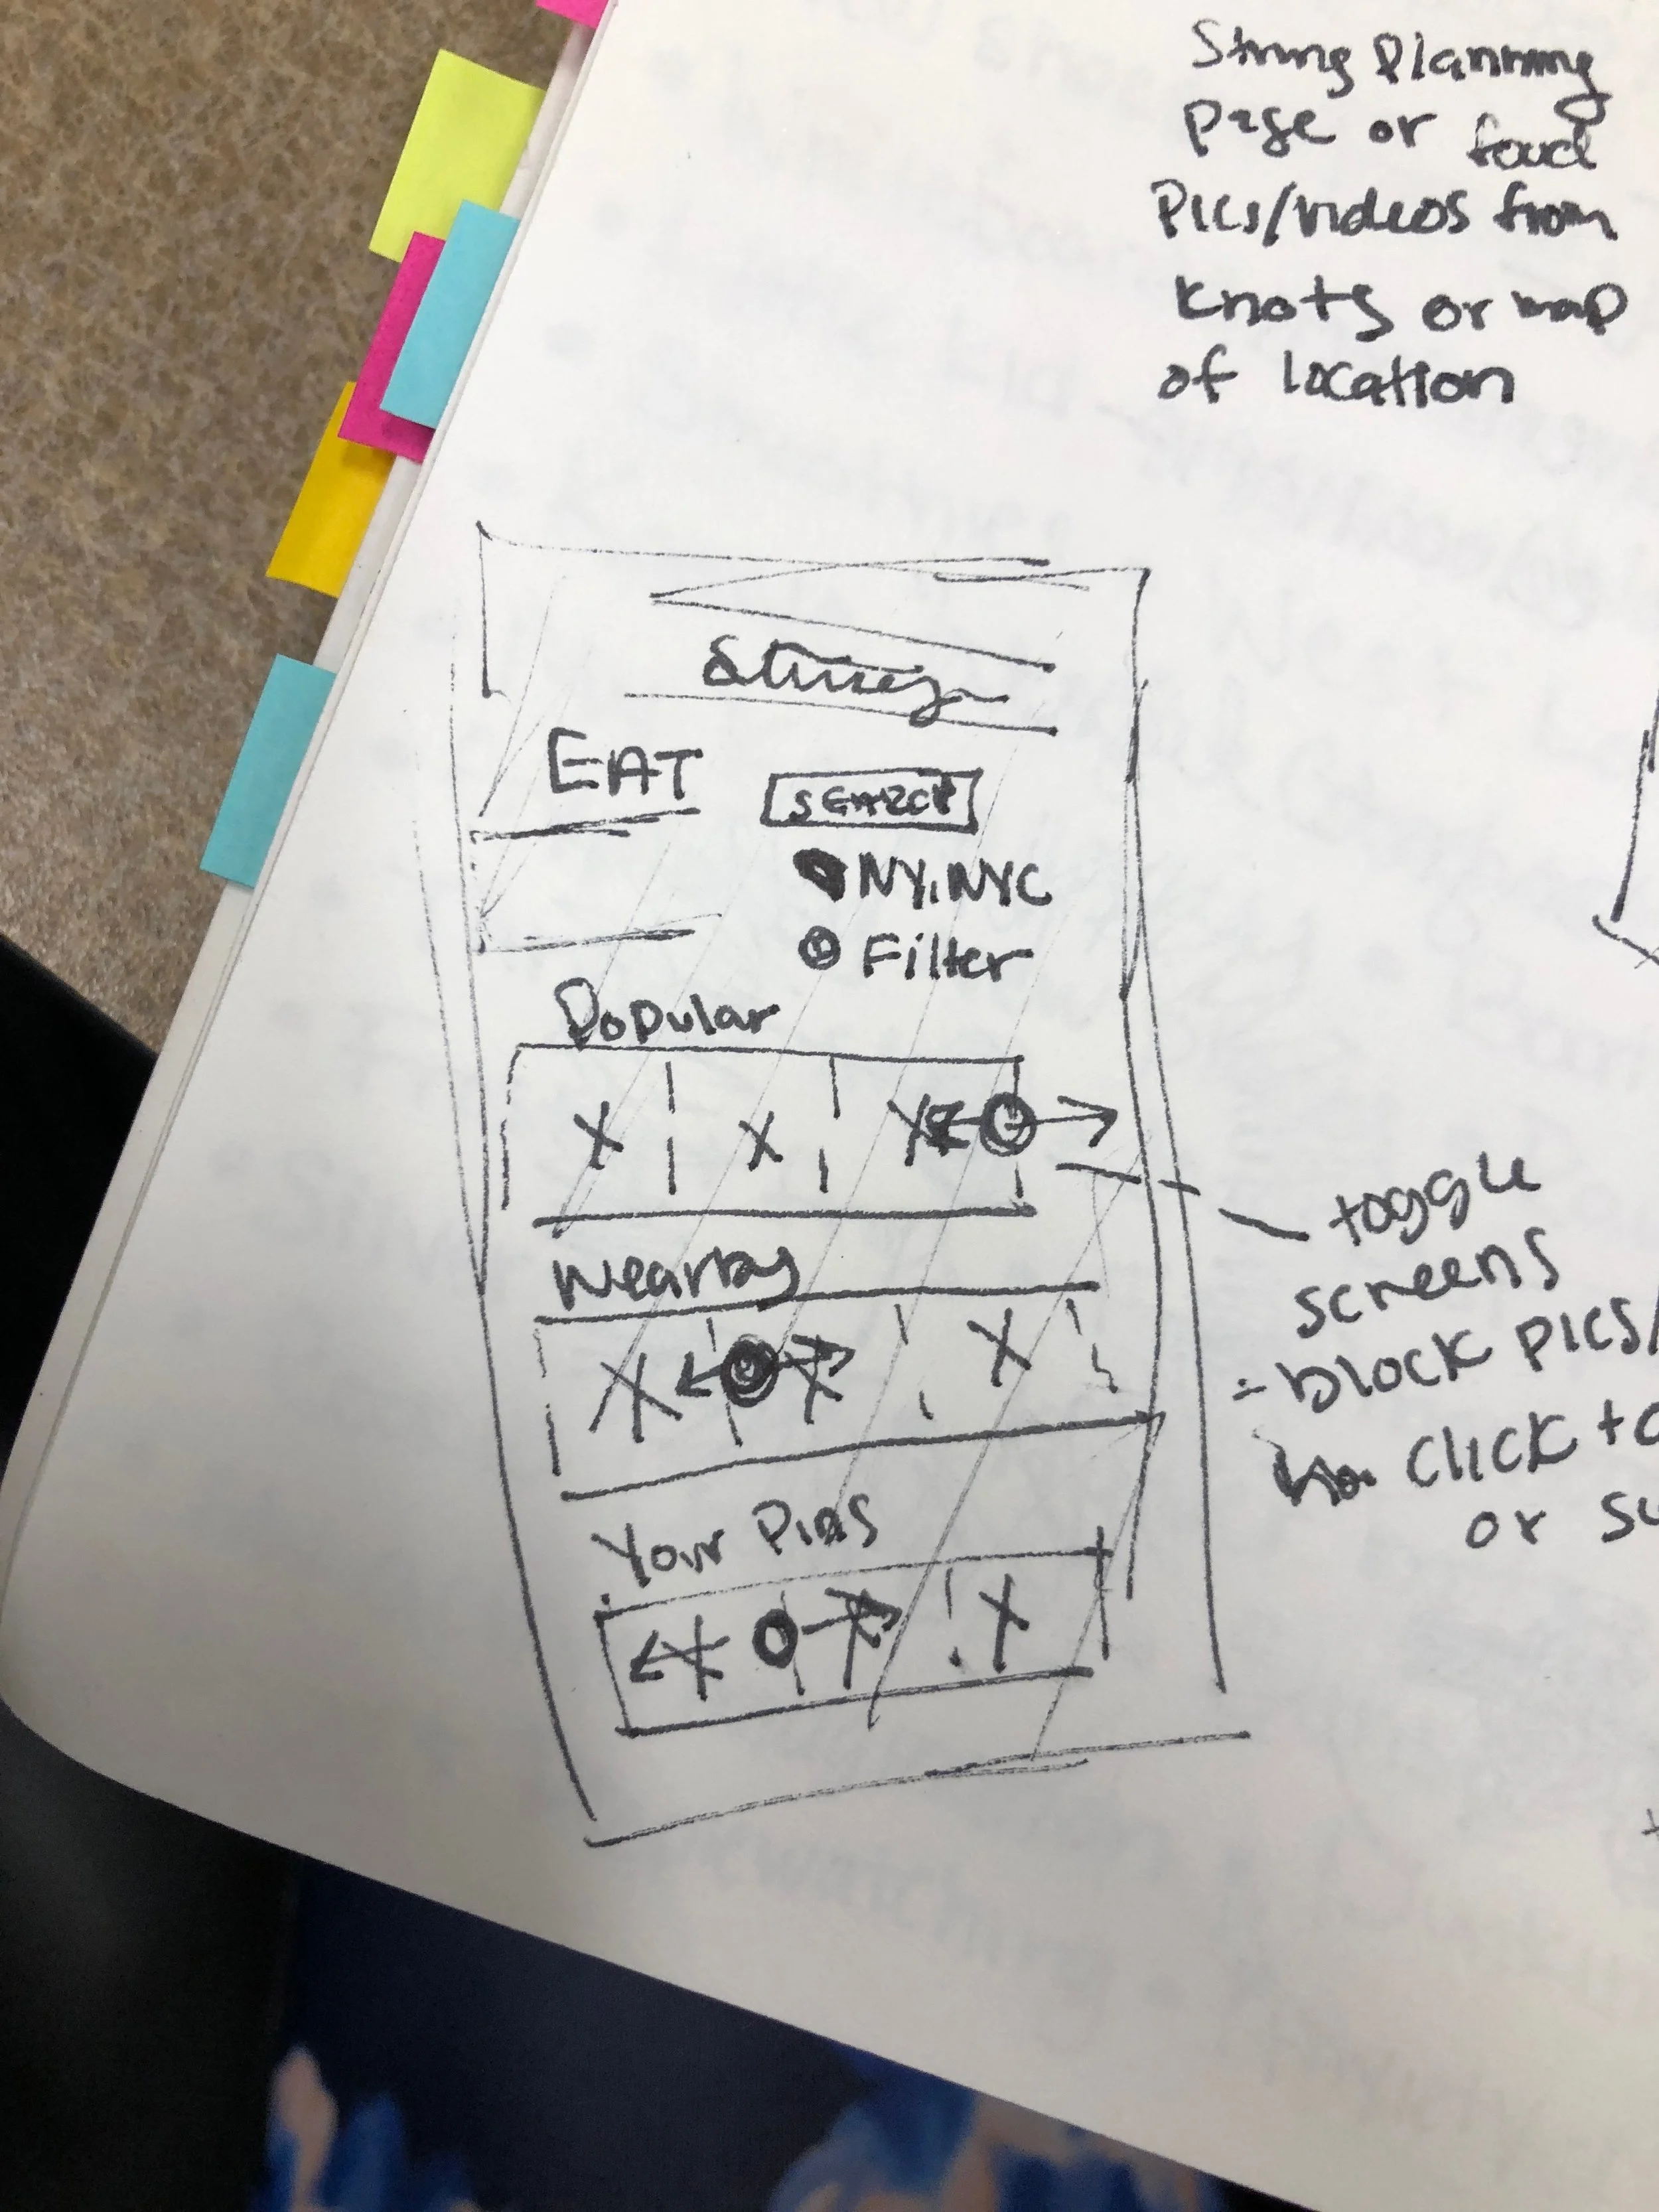 String Planning
Page or food
Pics/videos from
knots or map
of location
Stringy
EAT
SEARCH
NY, NYC
Filter
Popular
X X X
Nearby
X X X
Your Pins
X X X
toggle
screens
- block pics/
click to
or